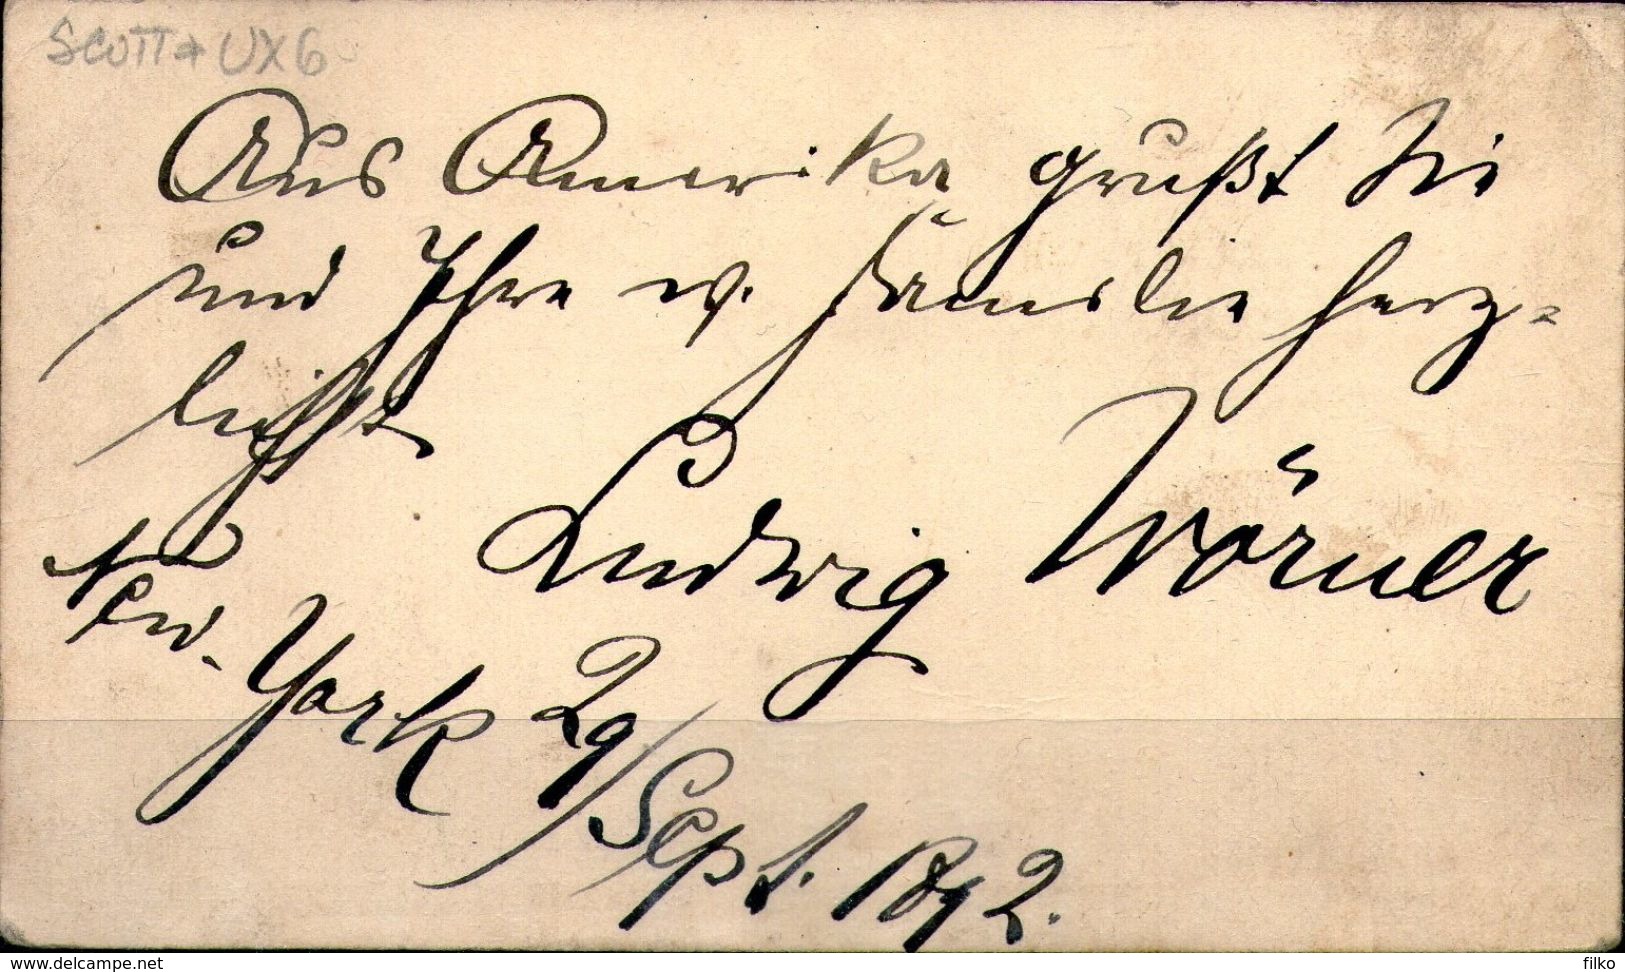 Scott + UX6
Aus Amerika grüßt Sie
und Ihre w. Familie herz=
lichst
Ludwig Wörner
New-York 29/Sept. 1892.
www.delcampe.net
filko